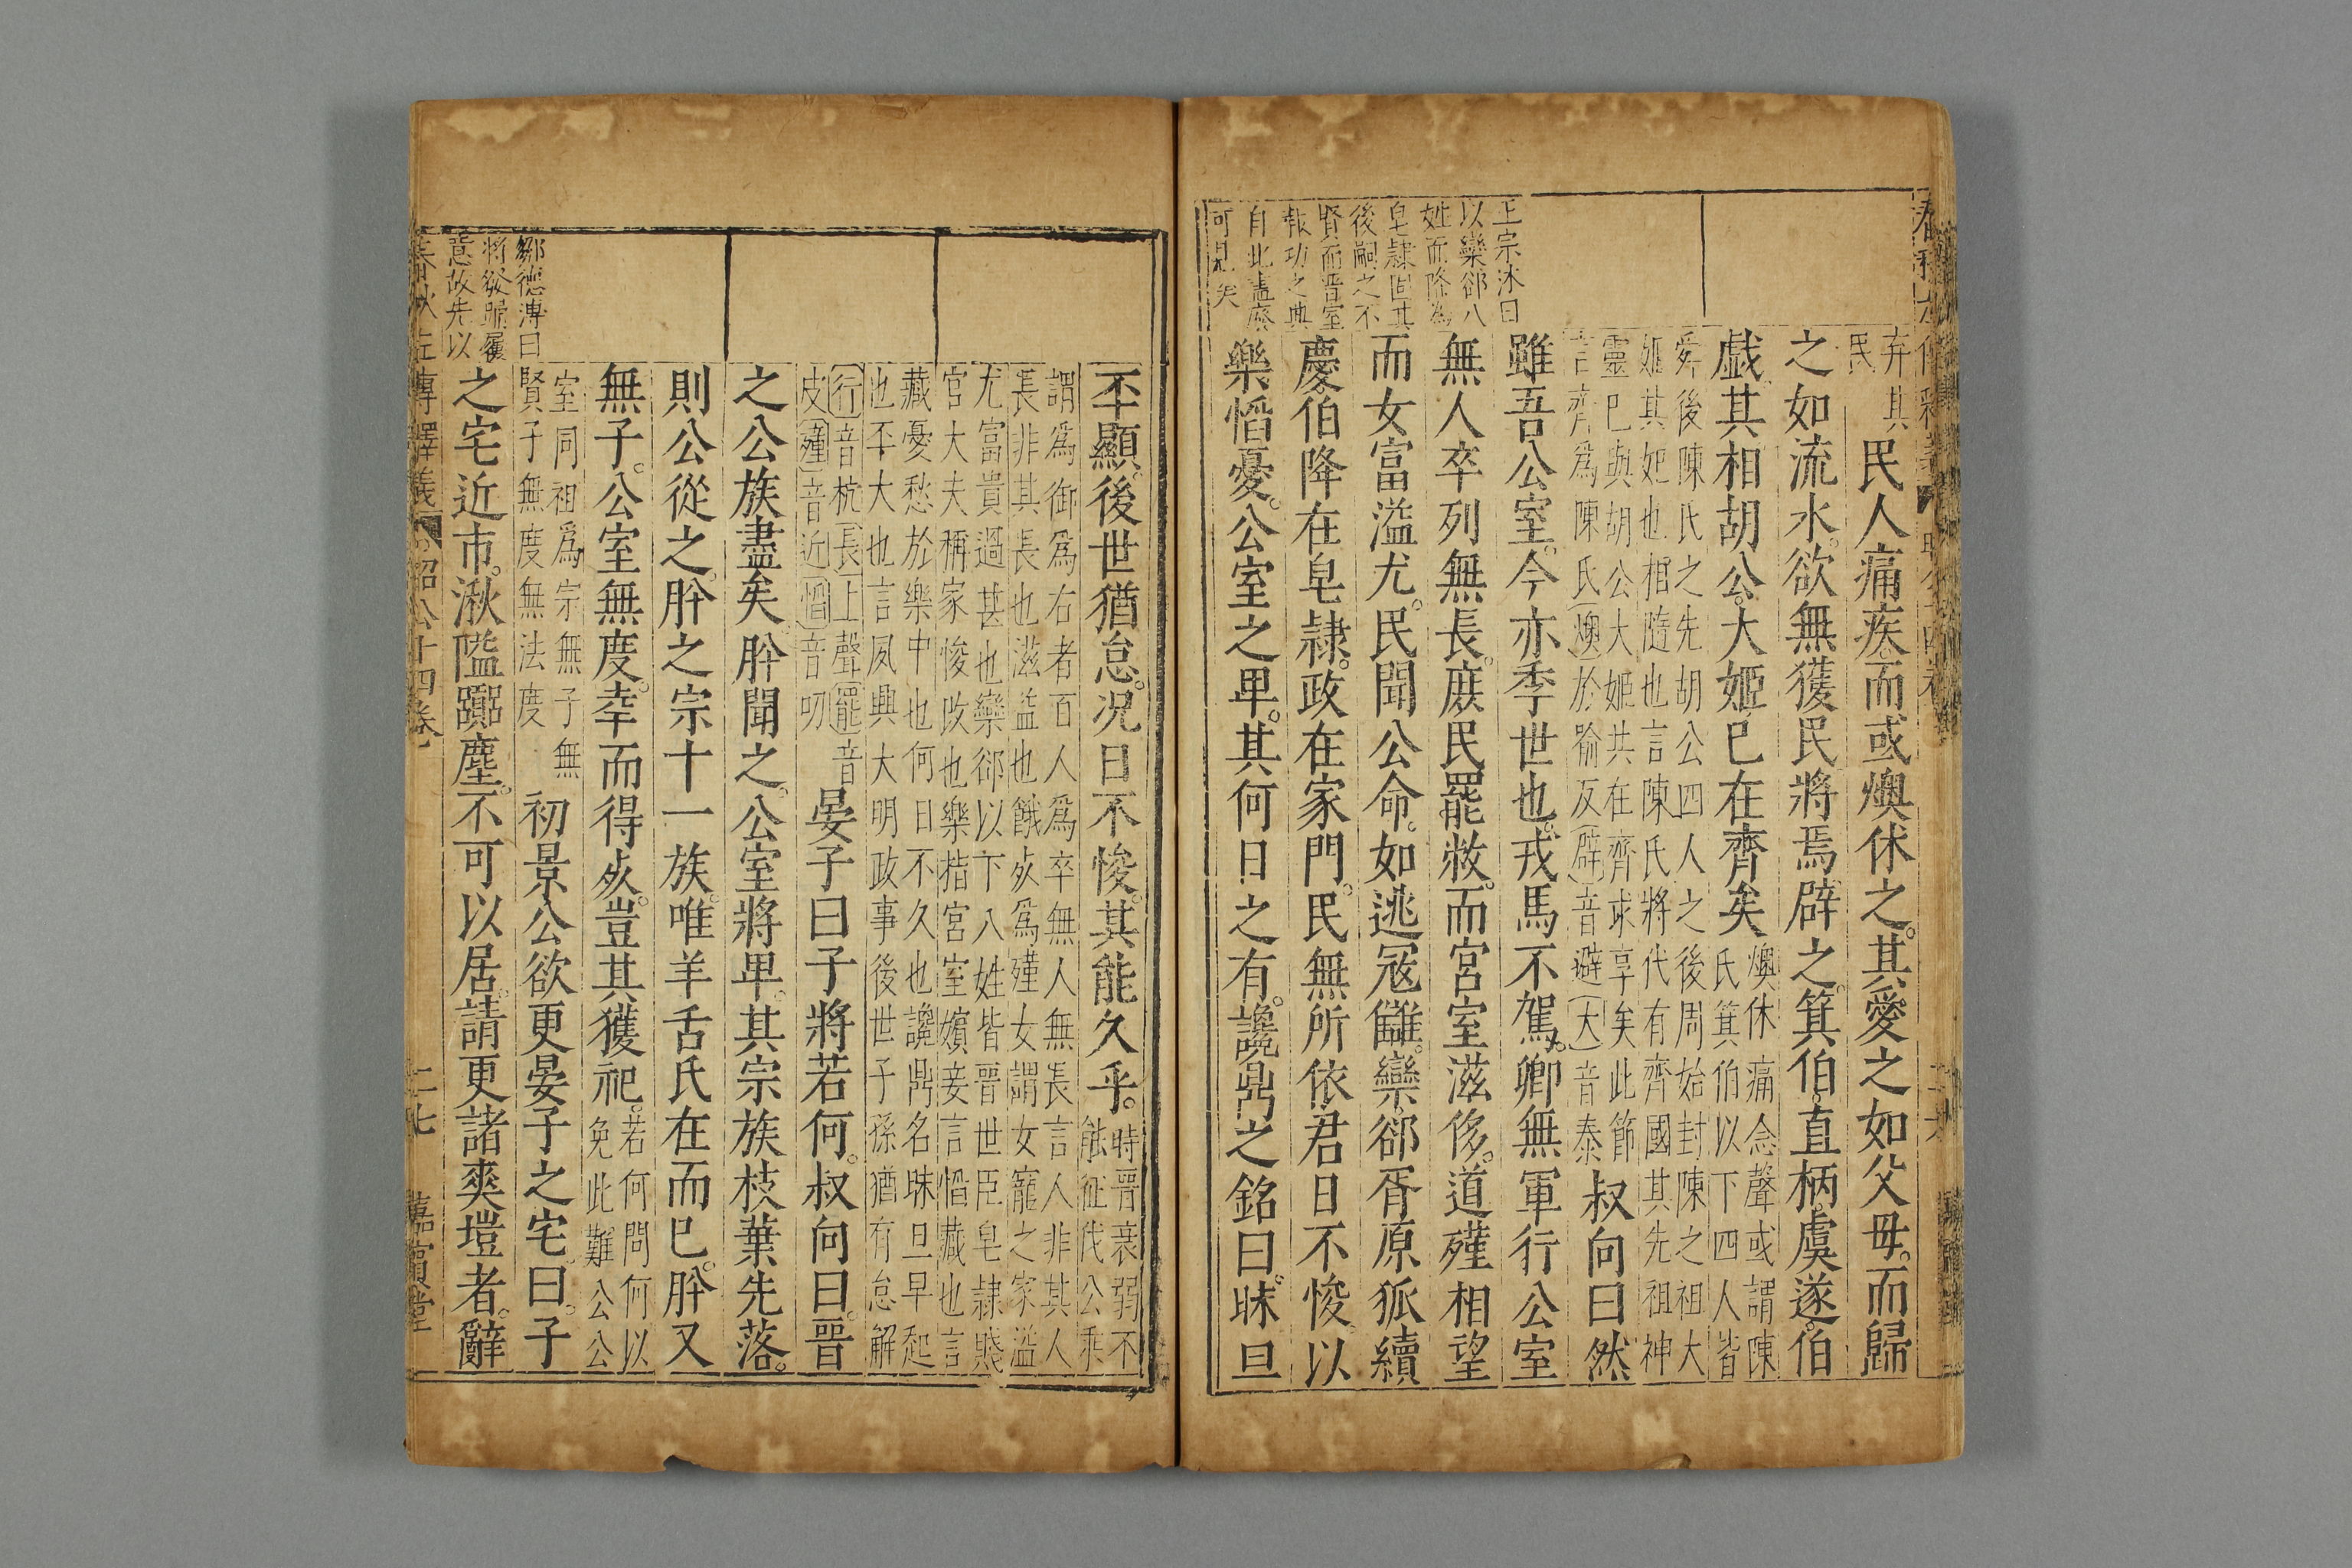 弃其
民
民人痛疾而或燠休之其愛之如父母而歸
之如流水欲無獲民將焉辟之箕伯直柄虞遂伯
戯其相胡公大姬巳在齊矣
燠休痛念聲或謂陳
氏箕伯以下四人皆
舜後陳氏之先胡公四人之後周始封陳之祖大
姬其妃也相隨也言陳氏將代有齊國其先祖神
靈巳與胡公大姬共在齊求享矣此節
言齊爲陳氏燠於喻反辟音避大音泰
叔向曰然
雖吾公室今亦季世也戎馬不駕卿無軍行公室
無人卒列無長庶民罷敝而宮室滋侈道殣相望
而女富溢尤民聞公命如逃寇讎欒郤胥原狐續
慶伯降在皂隷政在家門民無所依君日不悛以
樂慆憂公室之卑其何日之有讒鼎之銘曰昧旦
王宗沐曰
以欒郤八
姓而降爲
皂隷固其
後嗣之不
賢而晋室
報功之典
自此盡廢
可見矣
丕顯後世猶怠況日不悛其能久乎
時晋衰弱不
能征伐公乘
謂爲御爲右者百人爲卒無人無長言人非其人
長非其長也滋益也餓死爲殣女謂女寵之家溢
尤富貴過甚也欒郤以下八姓皆晋世臣皂隷賤
官大夫稱家悛改也樂指宮室嬪妾言慆藏也言
藏憂愁於樂中也何日不久也讒鼎名昧旦早起
也丕大也言夙興大明政事後世子孫猶有怠解
行音杭長上聲罷音
皮殣音近慆音叨
晏子曰子將若何叔向曰晋
之公族盡矣肸聞之公室將卑其宗族枝葉先落
則公從之肸之宗十一族唯羊舌氏在而巳肸又
無子公室無度幸而得死豈其獲祀
若何問何以
免此難公公
室同祖爲宗無子無
賢子無度無法度
初景公欲更晏子之宅曰子
之宅近市湫隘囂塵不可以居請更諸爽塏者辭
鄒德溥曰
將發踊屨
意故先以
春秋左傳釋義 昭公十四卷 二七 嘉賓堂